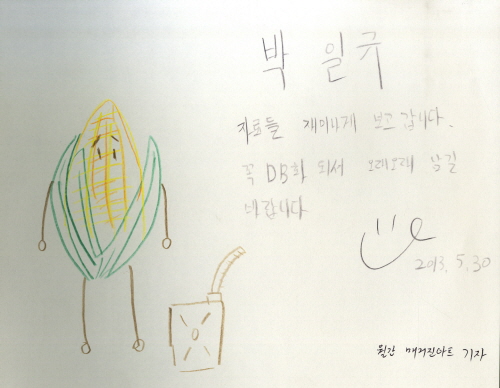 박 일규
자료들 재미나게 보고 갑니다.
꼭 DB화 되서 오래오래 남길
바랍니다
2013. 5. 30
월간 매거진아트 기자